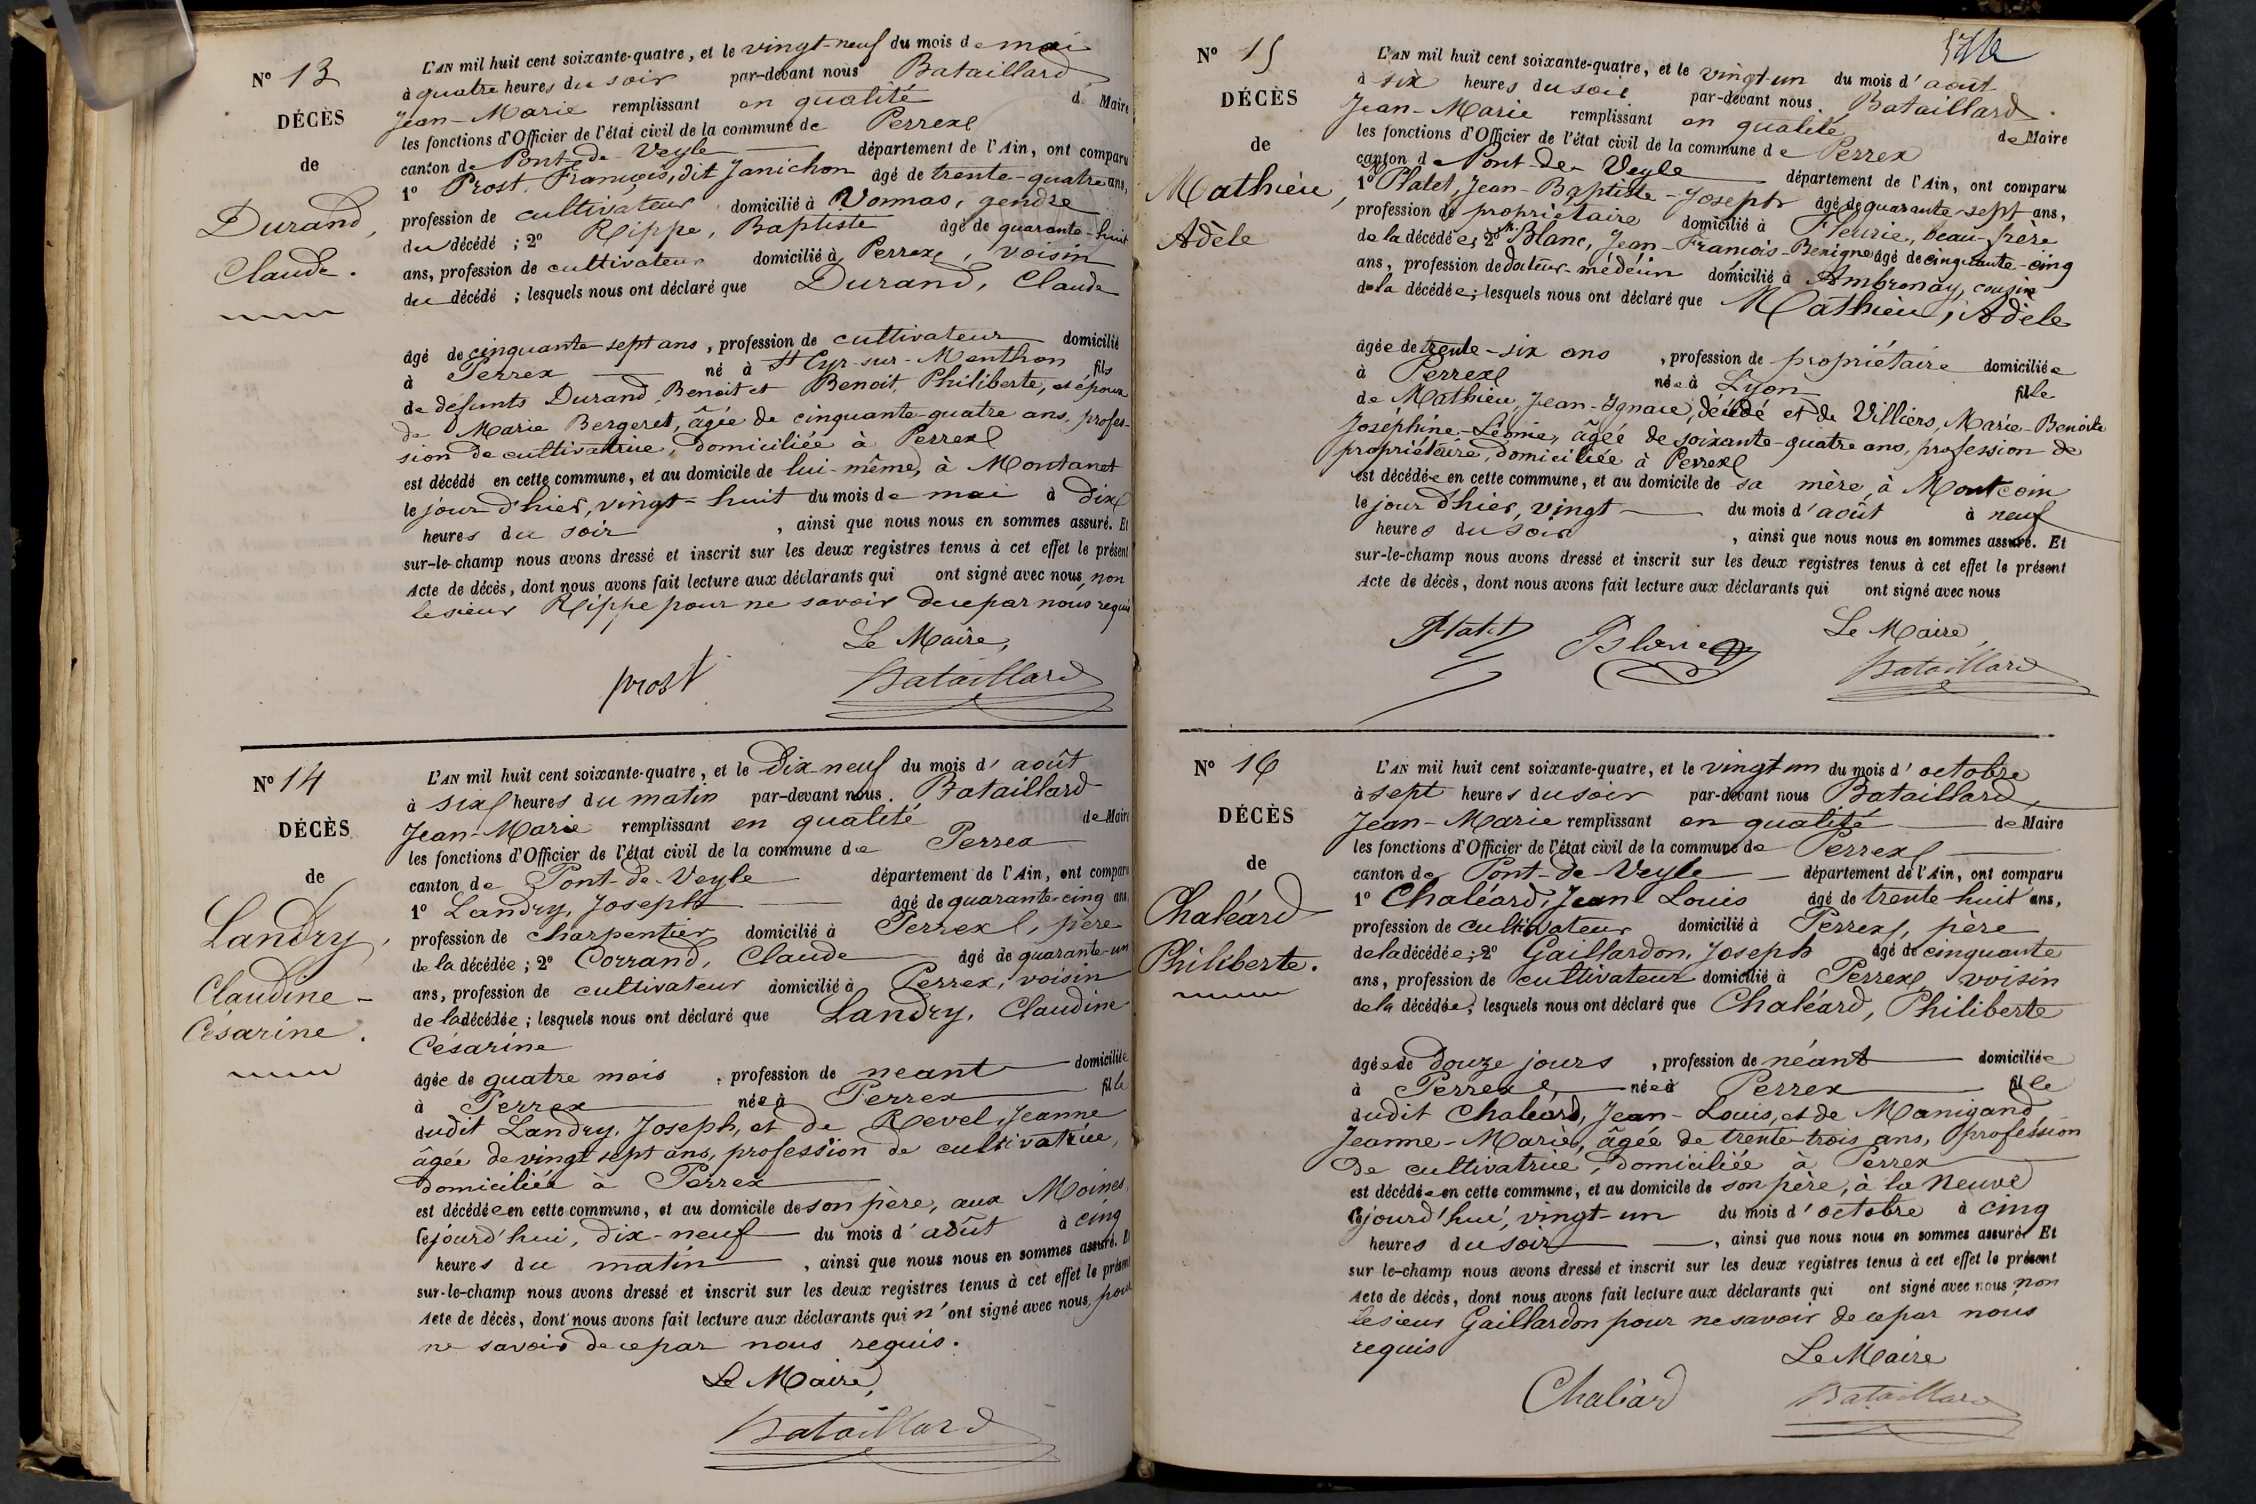 Nº 13
DÉCÈS
de
Durand,
Claude.
L'AN mil huit cent soixante-quatre, et le vingt-neuf du mois de mai
à quatre heures du soir par-devant nous Bataillard
Jean-Marie remplissant en qualité de Maire
les fonctions d'Officier de l'état civil de la commune de Perrex
canton de Pont-de-Veyle département de l'Ain, ont comparu
1º Prost, François, dit Janichon âgé de trente-quatre ans,
profession de cultivateur domicilié à Vonnas, gendre
du décédé ; 2º Rippe, Baptiste âgé de quarante-huit
ans, profession de cultivateur domicilié à Perrex, voisin
du décédé ; lesquels nous ont déclaré que Durand, Claude
âgé de cinquante-sept ans, profession de cultivateur domicilié
à Perrex né à St Cyr-sur-Menthon fils
de défunts Durand, Benoit et Benoit, Philiberte, et époux
de Marie Bergeret, âgée de cinquante-quatre ans, profes-
sion de cultivatrice, domiciliée à Perrex
est décédé en cette commune, et au domicile de lui-même, à Montanet
le jour d'hier, vingt-huit du mois de mai à dix
heures du soir, ainsi que nous nous en sommes assuré. Et
sur-le-champ nous avons dressé et inscrit sur les deux registres tenus à cet effet le présent
Acte de décès, dont nous avons fait lecture aux déclarants qui ont signé avec nous, non
le sieur Rippe pour ne savoir de ce par nous requis
Le Maire,
prost Bataillard
Nº 14
DÉCÈS
de
Landry,
Claudine-
Césarine.
L'AN mil huit cent soixante-quatre, et le Dix-neuf du mois d'août
à six heures du matin par-devant nous Bataillard
Jean-Marie remplissant en qualité de Maire
les fonctions d'Officier de l'état civil de la commune de Perrex
canton de Pont-de-Veyle département de l'Ain, ont comparu
1º Landry, Joseph âgé de quarante-cinq ans,
profession de charpentier domicilié à Perrex, père
de la décédée ; 2º Corrand, Claude âgé de quarante-un
ans, profession de cultivateur domicilié à Perrex, voisin
de la décédée ; lesquels nous ont déclaré que Landry, Claudine
Césarine
âgée de quatre mois, profession de néant domiciliée
à Perrex née à Perrex fille
dudit Landry, Joseph, et de Revel, Jeanne
âgée de vingt sept ans, profession de cultivatrice,
domiciliée à Perrex
est décédée en cette commune, et au domicile de son père, aux Moines,
cejourd'hui, dix-neuf du mois d'août à cinq
heures du matin, ainsi que nous nous en sommes assuré. Et
sur-le-champ nous avons dressé et inscrit sur les deux registres tenus à cet effet le présent
Acte de décès, dont nous avons fait lecture aux déclarants qui n'ont signé avec nous, pour
ne savoir de ce par nous requis.
Le Maire,
Bataillard
Nº 15
DÉCÈS
de
Mathieu,
Adèle
L'AN mil huit cent soixante-quatre, et le vingt-un du mois d'août
à six heures du soir par-devant nous Bataillard
Jean-Marie remplissant en qualité de Maire
les fonctions d'Officier de l'état civil de la commune de Perrex
canton de Pont-de-Veyle département de l'Ain, ont comparu
1º Platet, Jean-Baptiste-Joseph âgé de quarante-sept ans,
profession de propriétaire domicilié à Fleurie, beau-frère
de la décédée ; 2º Blanc, Jean-François-Benigne âgé de cinquante-cinq
ans, profession de docteur-médecin domicilié à Ambronay, cousin
de la décédée ; lesquels nous ont déclaré que Mathieu, Adèle
âgée de trente-six ans, profession de propriétaire domiciliée
à Perrex née à Lyon fille
de Mathieu, Jean-Ignace, décédé et de Villiers, Marie-Benoite
Joséphine-Léonie, âgée de soixante-quatre ans, profession de
propriétaire, domiciliée à Perrex
est décédée en cette commune, et au domicile de sa mère, à Montcoin
le jour d'hier, vingt du mois d'août à neuf
heures du soir, ainsi que nous nous en sommes assuré. Et
sur-le-champ nous avons dressé et inscrit sur les deux registres tenus à cet effet le présent
Acte de décès, dont nous avons fait lecture aux déclarants qui ont signé avec nous
Le Maire,
Platet Blanc Bataillard
Nº 16
DÉCÈS
de
Chaléard
Philiberte.
L'AN mil huit cent soixante-quatre, et le vingt un du mois d'octobre
à sept heures du soir par-devant nous Bataillard,
Jean-Marie remplissant en qualité de Maire
les fonctions d'Officier de l'état civil de la commune de Perrex
canton de Pont-de-Veyle département de l'Ain, ont comparu
1º Chaléard, Jean-Louis âgé de trente huit ans,
profession de cultivateur domicilié à Perrex, père
de la décédée ; 2º Gaillardon, Joseph âgé de cinquante
ans, profession de cultivateur domicilié à Perrex voisin
de la décédée, lesquels nous ont déclaré que Chaléard, Philiberte
âgée de Douze jours, profession de néant domiciliée
à Perrex, née à Perrex fille
dudit Chaléard, Jean-Louis, et de Manigand,
Jeanne-Marie, âgée de trente-trois ans, profession
de cultivatrice, domiciliée à Perrex
est décédée en cette commune, et au domicile de son père, à la Neuve
cejourd'hui, vingt-un du mois d'octobre à cinq
heures du soir, ainsi que nous nous en sommes assuré. Et
sur le-champ nous avons dressé et inscrit sur les deux registres tenus à cet effet le présent
Acte de décès, dont nous avons fait lecture aux déclarants qui ont signé avec nous non
le sieur Gaillardon pour ne savoir de ce par nous
requis
Le Maire
Chaléard Bataillard